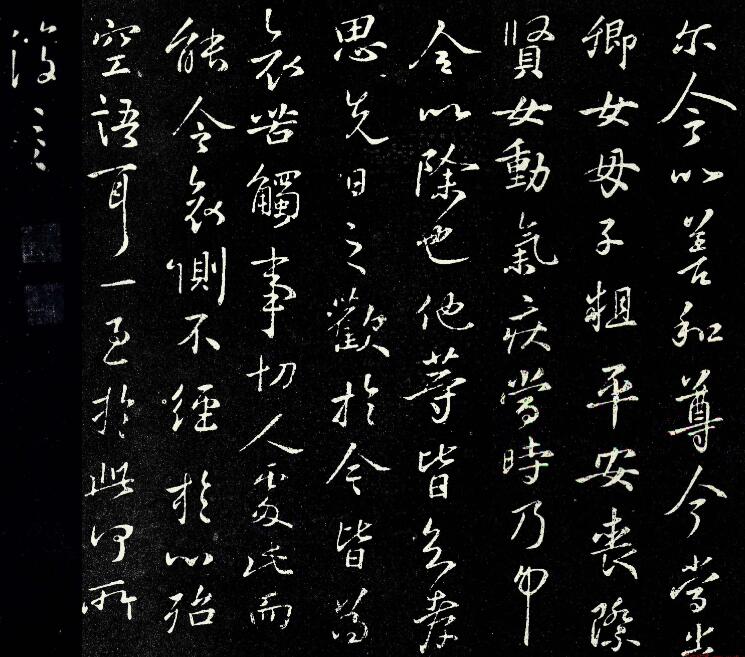 尔今以善和尊今當出
卿女母子粗平安喪際
賢女動氣疾當時乃
今以除也他等皆
思先日之歡於今皆為
哀苦觸事切人處此而
能令哀惻不經於心殆
空語耳一至於此何所
復言